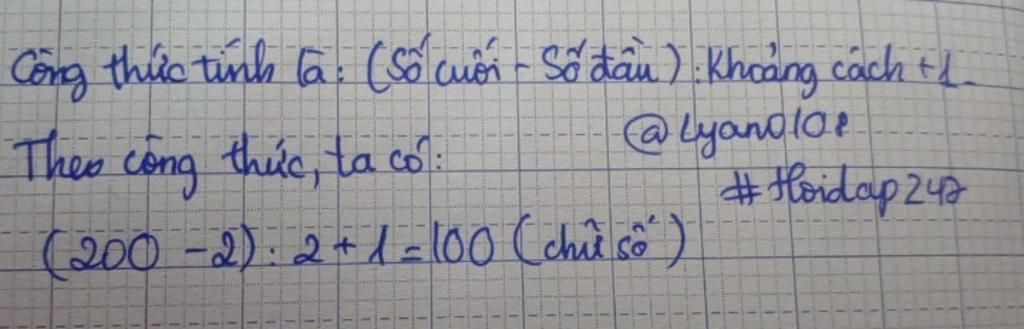 Công thức tính là: (Số cuối - Số đầu) : Khoảng cách +1
@Lyano108
Theo công thức, ta có:
#Hoidap247
(200 - 2) : 2 + 1 = 100 (chữ số)